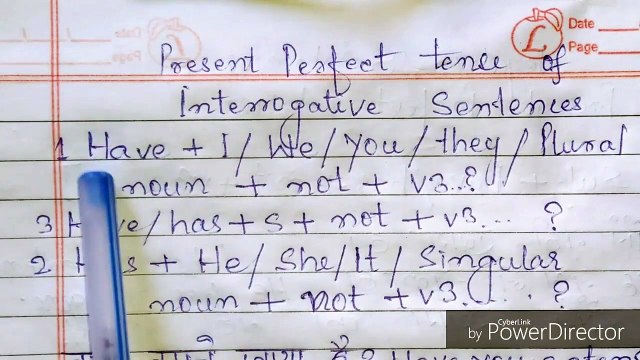 Date
Page
Present Perfect tence of
Interrogative Sentences
1 Have + I / We / You / they / Plural
noun + not + v3..?
3 /has + s + not + v3... ?
2 + He / She / It / Singular
noun + not + v3.... ?
Have you eaten
CyberLink
by PowerDirector